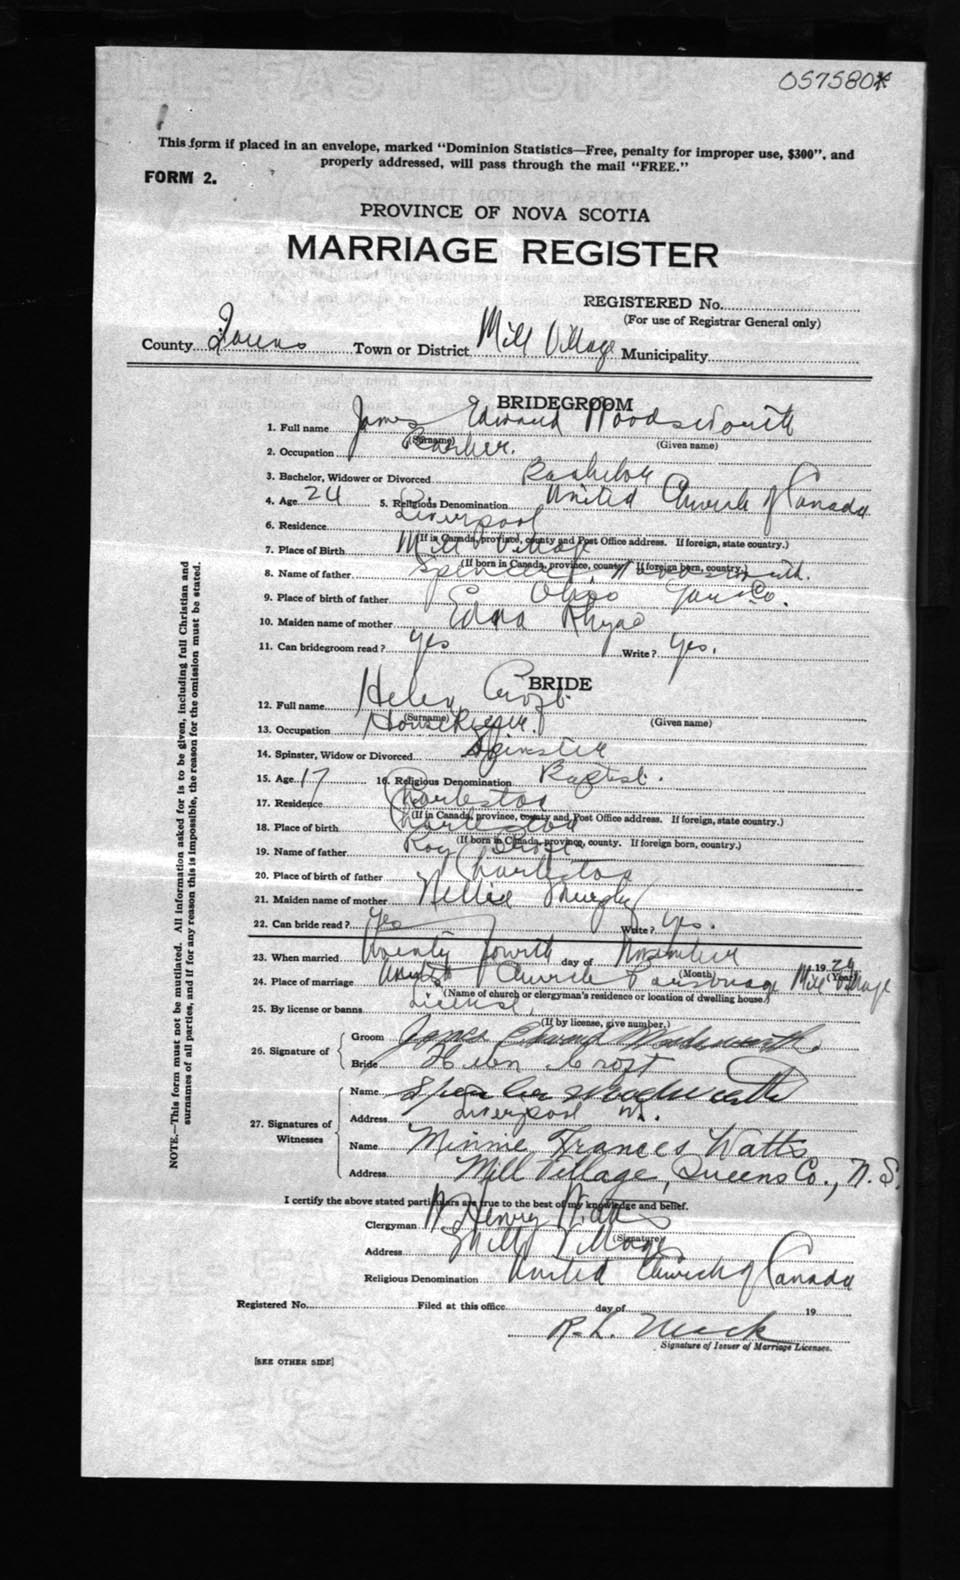 057580*
This form if placed in an envelope, marked "Dominion Statistics—Free, penalty for improper use, $300", and
properly addressed, will pass through the mail "FREE."
FORM 2.
PROVINCE OF NOVA SCOTIA
MARRIAGE REGISTER
REGISTERED No.
(For use of Registrar General only)
County Queens Town or District Mill Village Municipality
BRIDEGROOM
1. Full name James Edward Woodsworth
(Surname) (Given name)
2. Occupation
3. Bachelor, Widower or Divorced Bachelor
4. Age 24 5. Religious Denomination United Church of Canada
6. Residence Liverpool
(If in Canada, province, county and Post Office address. If foreign, state country.)
7. Place of Birth Mill Village
(If born in Canada, province, county. If foreign born, country.)
8. Name of father Spencer Woodsworth.
9. Place of birth of father Ohio Co.
10. Maiden name of mother Edna
11. Can bridegroom read? Yes Write? Yes.
BRIDE
12. Full name Helen Croft.
(Surname) (Given name)
13. Occupation House Keeper.
14. Spinster, Widow or Divorced Spinster
15. Age 17 16. Religious Denomination Baptist.
17. Residence Charleston
(If in Canada, province, county and Post Office address. If foreign, state country.)
18. Place of birth Charleston
(If born in Canada, province, county. If foreign born, country.)
19. Name of father Roy Croft
20. Place of birth of father Charleston
21. Maiden name of mother Nellie Murphy
22. Can bride read? Yes Write? Yes.
23. When married Twenty Fourth day of November 19 26
(Month) (Year)
24. Place of marriage United Church Parsonage Mill Village
(Name of church or clergyman's residence or location of dwelling house.)
25. By license or banns License.
(If by license, give number.)
26. Signature of
Groom James Edward Woodsworth.
Bride Helen Croft
27. Signatures of Witnesses
Name Spencer Woodworth
Address Liverpool
Name Minnie Frances Watts
Address Mill Village, Queens Co., N. S.
I certify the above stated particulars are true to the best of my knowledge and belief.
Clergyman Henry Watts
(Signature)
Address Mill Village
Religious Denomination United Church of Canada
Registered No. Filed at this office day of 19
R. L. Mack
Signature of Issuer of Marriage Licenses.
[SEE OTHER SIDE]
NOTE.—This form must not be mutilated. All information asked for is to be given, including full Christian and
surnames of all parties, and if for any reason this is impossible, the reason for the omission must be stated.